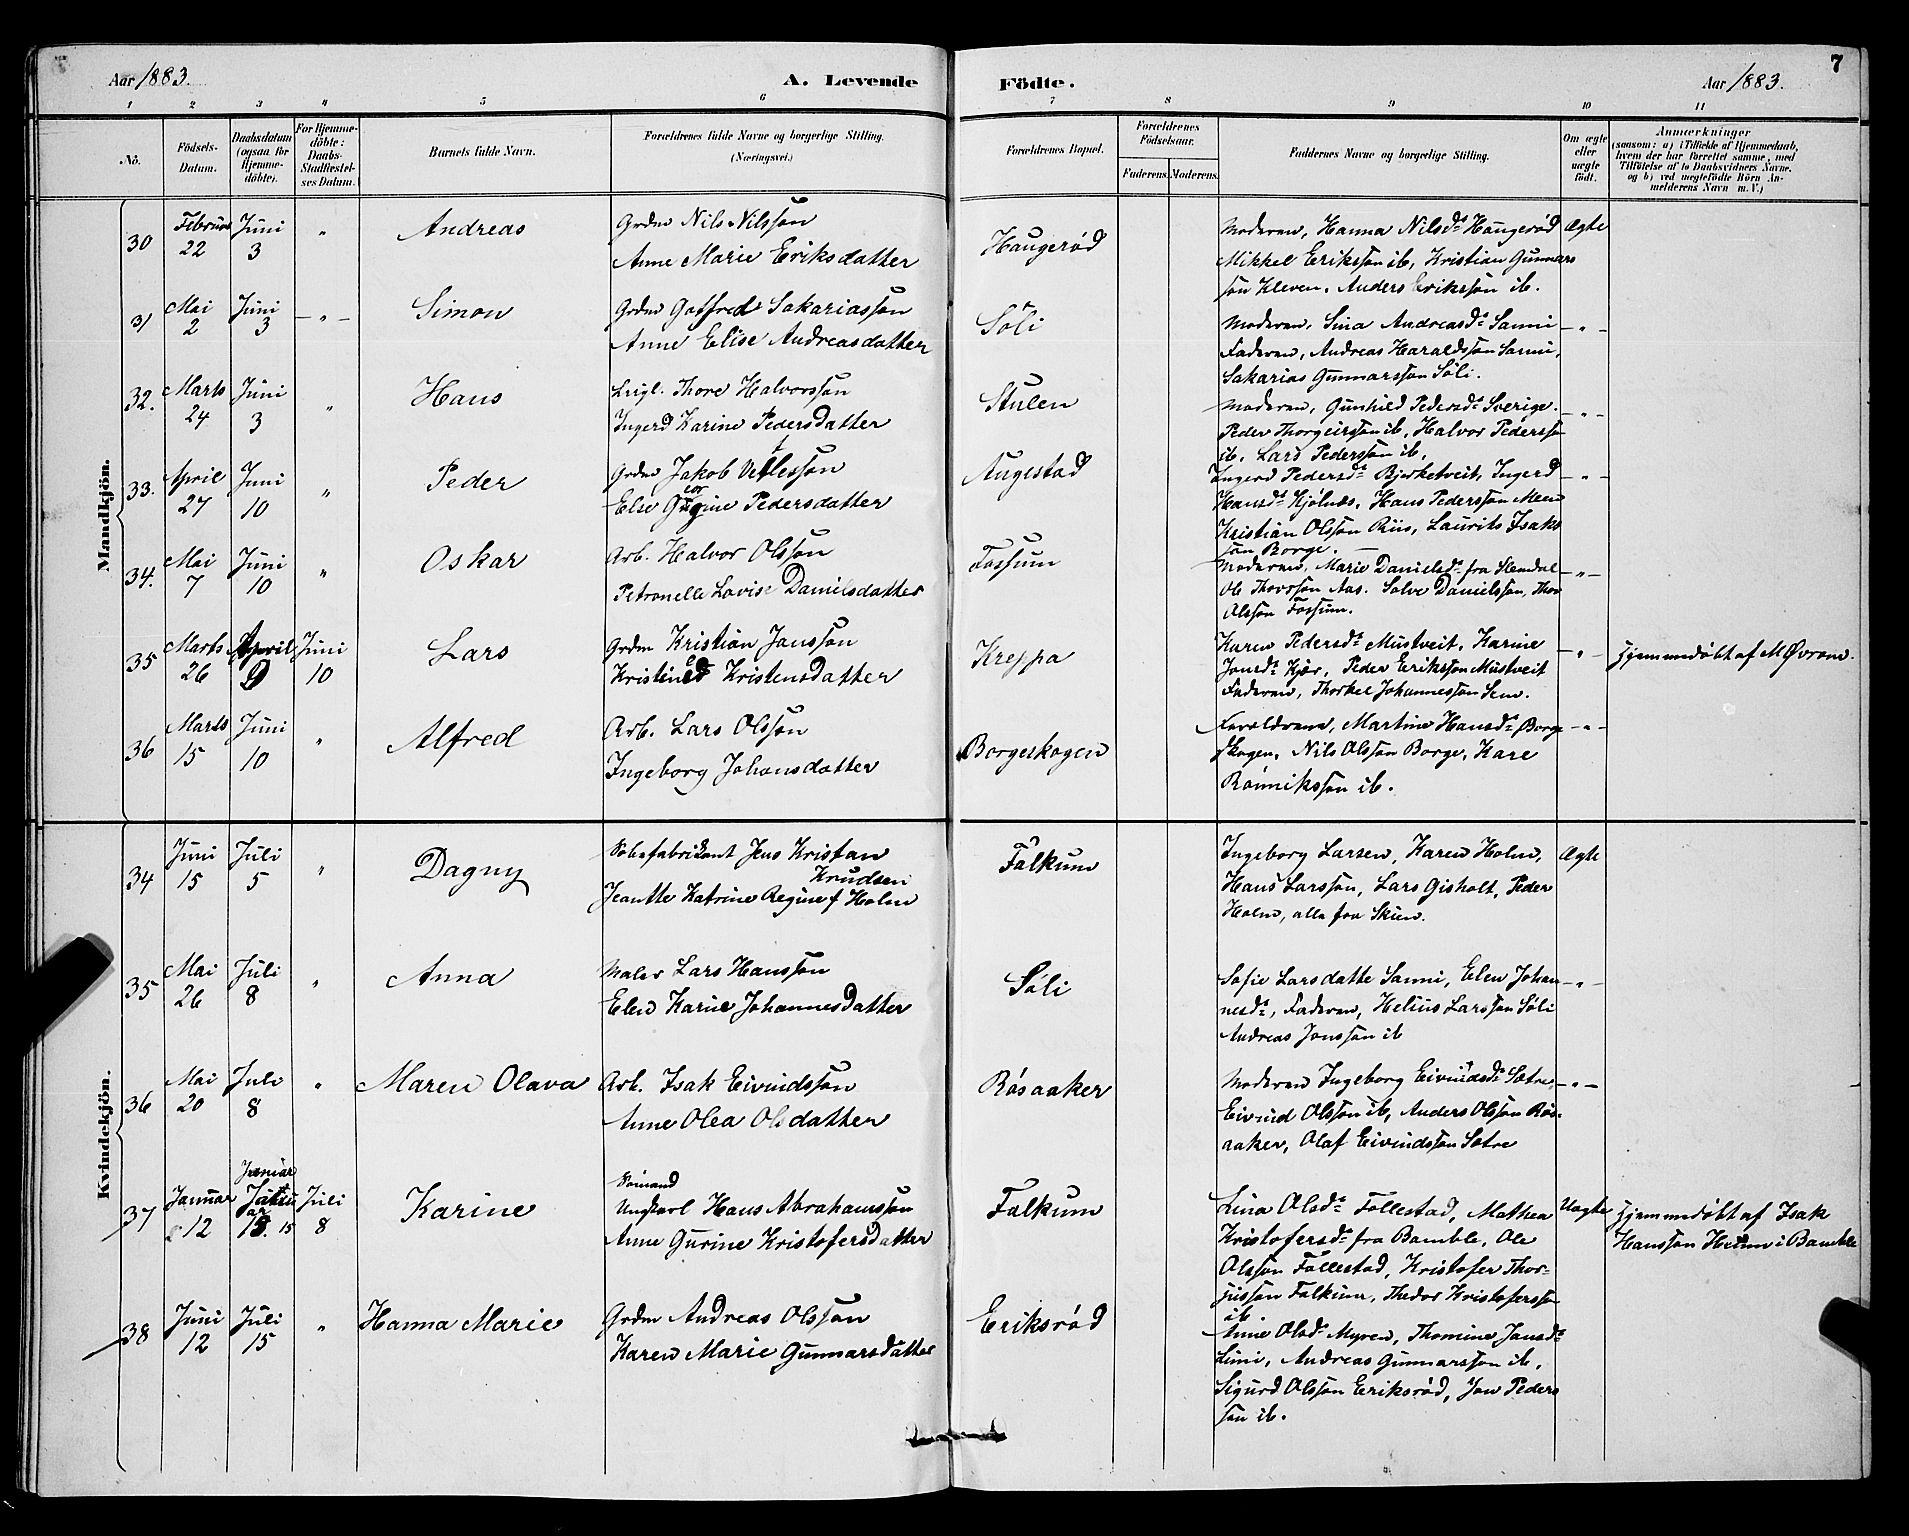 7
Aar 1883.
A. Levende Födte.
Aar 1883.
1 2 3 4 5 6 7 8 9 10 11
Nô.
Födsels-Datum.
Daabsdatum (ogsaa for Hjemme-döbte).
For Hjemme-döbte: Daabs-Stadfæstel-ses Datum.
Barnets fulde Navn.
Forældrenes fulde Navne og borgerlige Stilling. (Næringsvei.)
Forældrenes Bopæl.
Forældrenes Födselsaar.
Faderens. Moderens.
Faddernes Navne og borgerlige Stilling.
Om ægte eller uægte födt.
Anmærkninger
(saasom: a) i Tilfælde af Hjemmedaab, hvem der har forrettet samme, med Tilföielse af to Daabsvidners Navne, og b) ved uægtefödte Börn An-melderens Navn m. V.)
Mandkjön.
30 Februar 22 Juni 3 " Andreas
Grdm Nils Nilsson
Anne Marie Eriksdatter
Haugerød
Moderen, Hanna Nilsd: Haugerød
Mikkel Eriksson ib, Kristian Gunnars
son Kleven, Anders Eriksson ib.
Ægte
31 Mai 2 Juni 3 -"- Simon
Grdm Gotfred Sakariasson
Anne Elise Andreasdatter
Söli
Moderen, Sina Andreasd: Sanni
Faderen, Andreas Haraldsson Sanni,
Sakarias Gunnarsson Söli.
-"-
32. Marts 24 Juni 3 " Hans
Leigl. Thore Halvorsson
Ingerd Karine Pedersdatter
Stulen
Moderen, Gunhild Pedersd: Sverige.
Peder Thorgeirsson ib, Halvor Pedersson
ib, Lars Pedersson ib,
-"-
33. April 27 Juni 10 " Peder
Grdm Jakob Vetlesson
Else Gurine Pedersdatter
Augestad
Ingerd Pedersd: Bjerketveit, Ingerd
Hansd: Kjölnæs, Hans Pedersson Meen
Kristian Olsson Riis, Laurits Isaks
son Borge.
-"-
34. Mai 7 Juni 10 " Oskar
Arb. Halvor Olsson
Petronelle Lovise Danielsdatter
Fossum
Moderen, Marie Danielsd: fra Slemdal
Ole Thorsson Aas. Solve Danielsson, Thor
Olsson Fossum.
-"-
35 Marts 26 April 9 Juni 10 Lars
Grdm Kristian Jansson
Kristine Kristensdatter
Kreppa
Karen Pedersd: Mustveit, Karine
Jonsd: Kjær, Peder Eriksson Mustveit
Faderen, Thorkel Johannesson Sem.
-"-
Hjemmedøbt af M Øvrom.
36 Marts 15 Juni 10 " Alfred
Arb. Lars Olsson
Ingeborg Johansdatter
Borgeskogen
Forældrene, Martine Hansd: Borge
skogen, Nils Olsson Borge, Kare
Rönniksson ib.
-"-
Kvindekjön.
34 Juni 15 Juli 5 " Dagny
Sæbefabrikant Jens Kristian
Knudsen
Jeantte Katrine Regine f Holm
Falkum
Ingeborg Larsen, Karen Holm,
Hans Larsson, Lars Gisholt, Peder
Holm, alle fra Skien.
Ægte
35 Mai 26 Juli 8 " Anna
Maler Lars Hansson
Elen Karine Johannesdatter
Söli
Sofie Larsdatte Sanni, Elen Johan
nesd:, Faderen, Helius Larsson Söli
Andreas Jonsson ib
-"-
36 Mai 20 Juli 8 " Maren Olava
Arb. Isak Eivindsson
Anne Olea Olsdatter
Rösaaker
Moderen Ingeborg Eivindsd: Sætre,
Eivind Olsson ib, Anders Olsson Rös-
aaker, Olaf Eivindsson Sætre
-"-
37 Januar 12 Januar 15 Juli 8 Karine
Sømand
Ungkarl Hans Abrahamsson
Anne Gurine Kristofersdatter
Falkum
Lina Olsd: Follestad, Mathea
Kristofersd: fra Bamble, Ole
Olsson Follestad, Kristofer Thor-
jusson Falkum, Thedor Kristofersson
ib.
Uægte
Hjemmedøbt af Isak
Hansson i Bamble
38 Juni 12 Juli 15 " Hanna Marie
Grdm Andreas Olsson
Karen Marie Gunnarsdatter
Eriksröd
Anne Olsd: Myren, Thomine Jansd:
Limi, Andreas Gunnarsson ib,
Sigurd Olsson Eriksröd, Jon Peders
son ib.